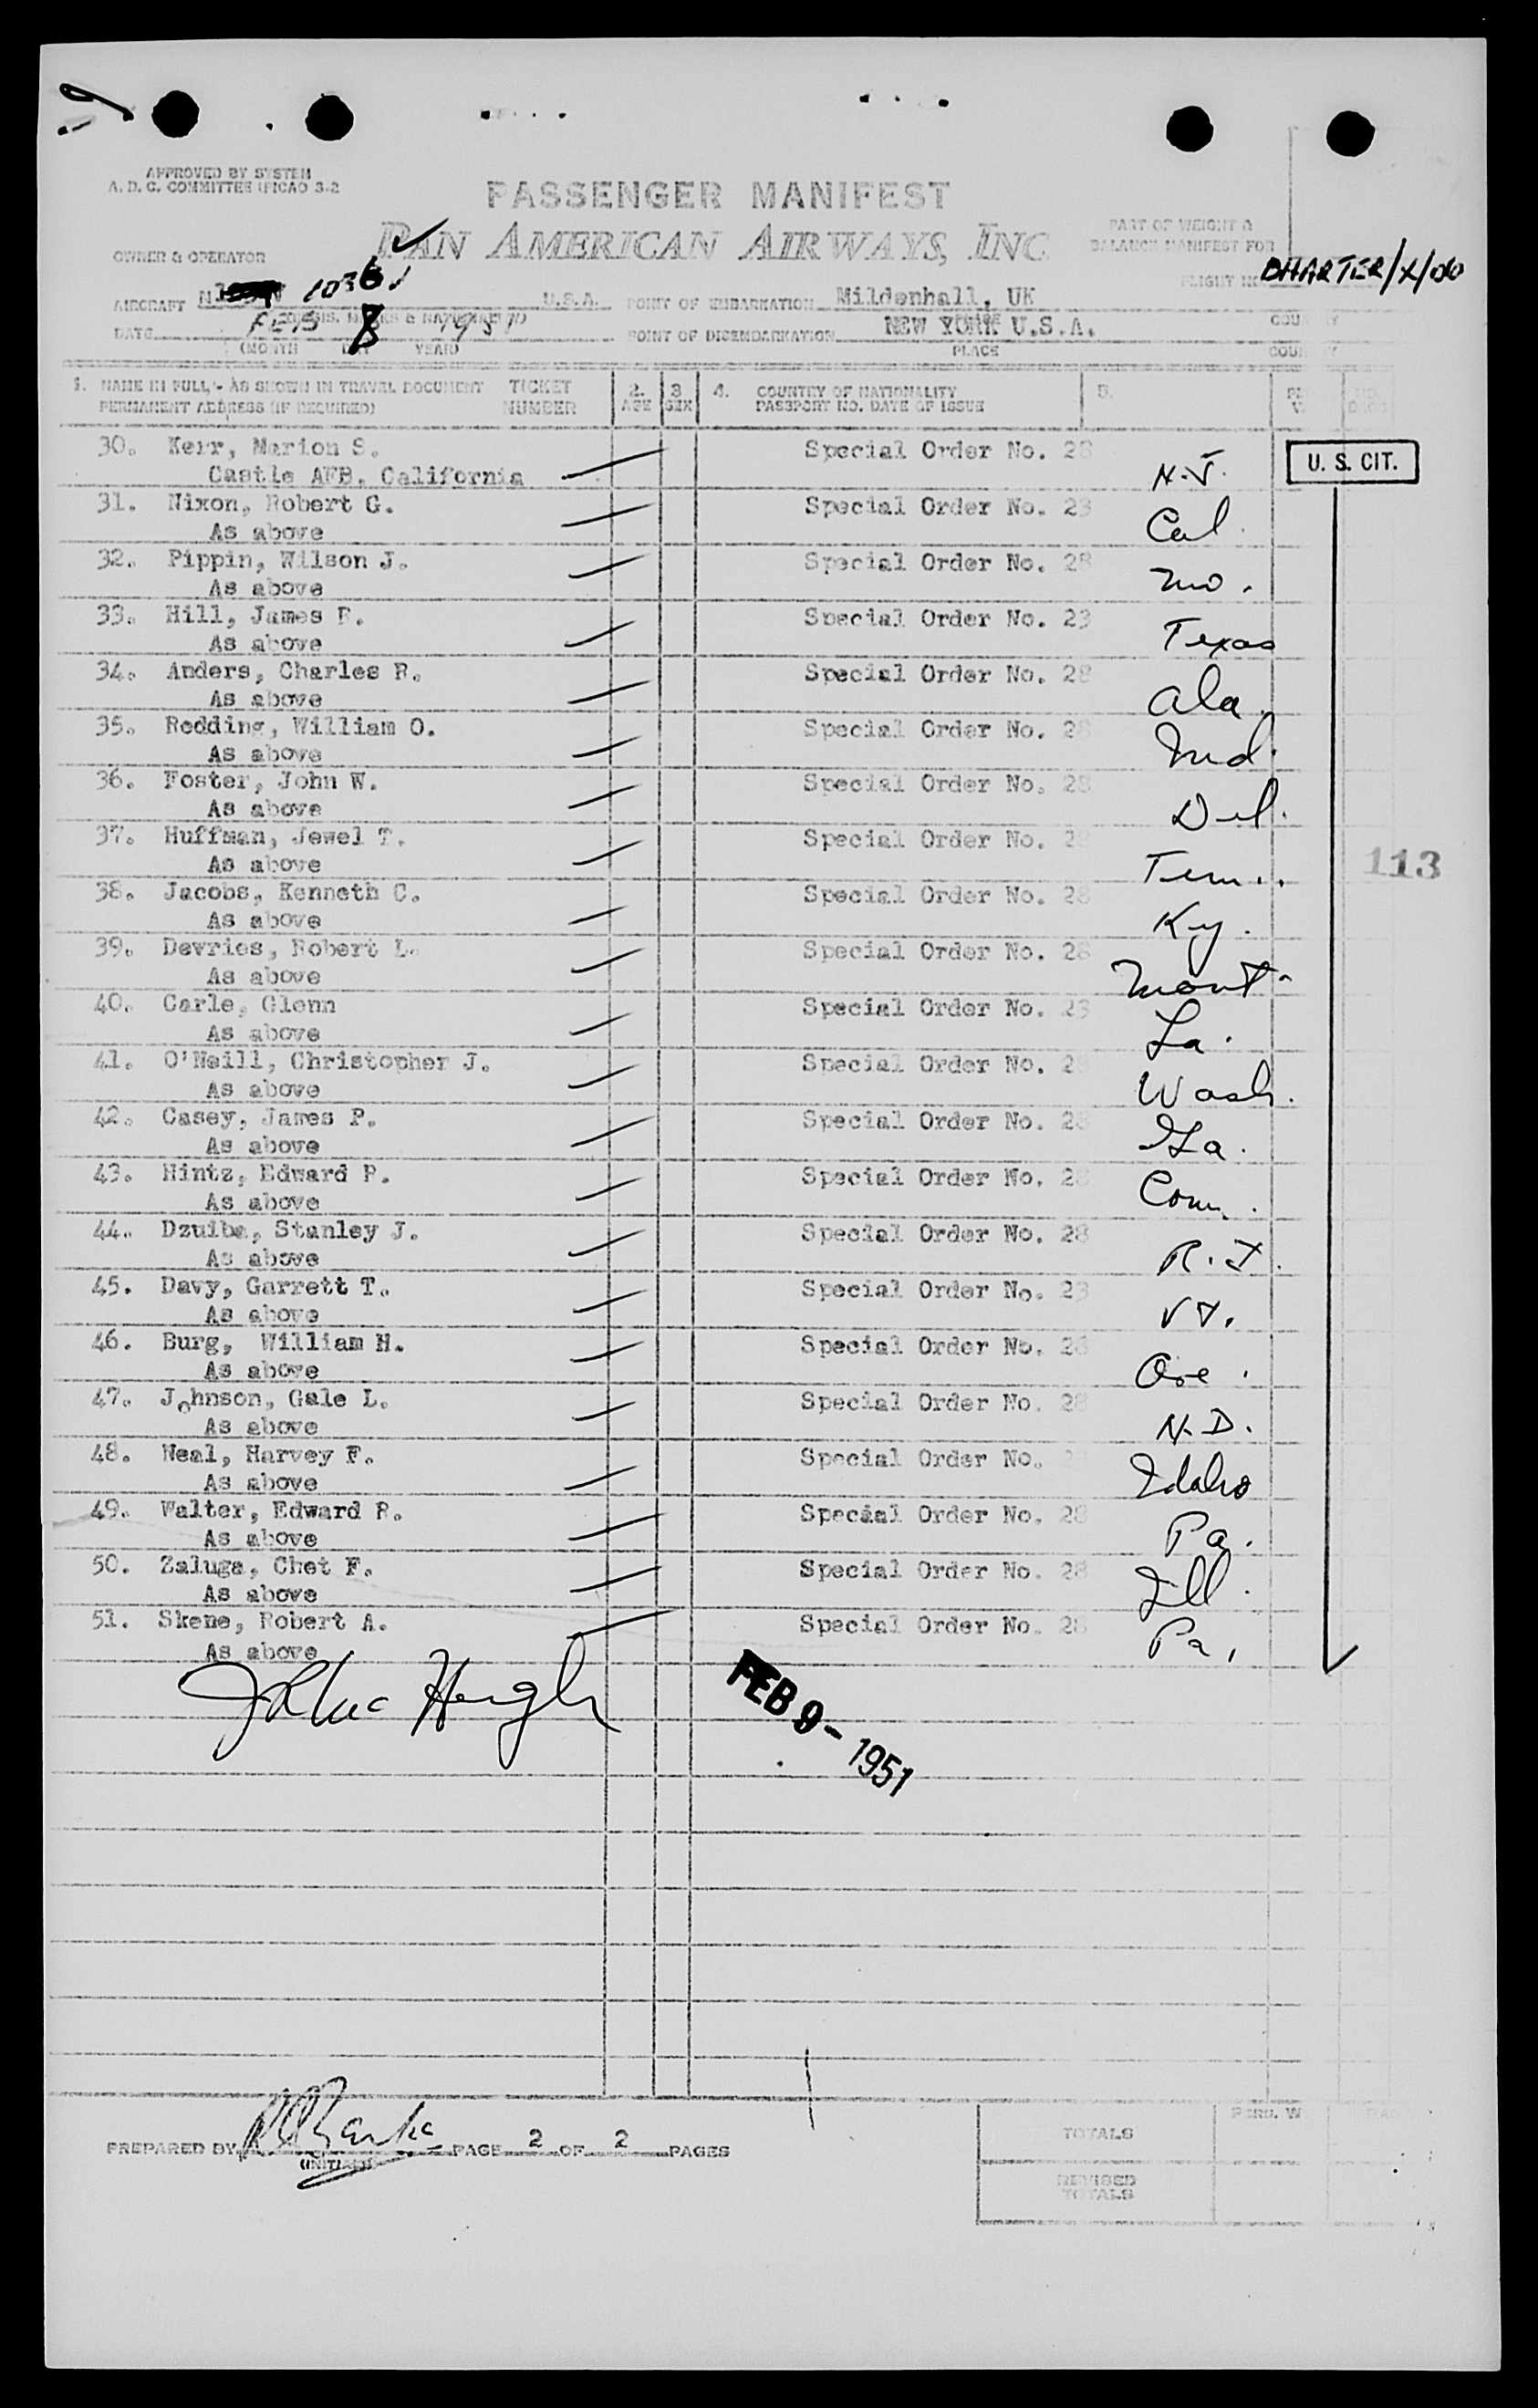 APPROVED BY SYSTEM
A. D. C. COMMITTEE (FICAO 3-2
PASSENGER MANIFEST
PAN AMERICAN AIRWAYS, INC
PART OF WEIGHT &
BALANCE MANIFEST FOR
OWNER & OPERATOR
FLIGHT NO. CHARTER/X/
AIRCRAFT N 1036 U.S.A. POINT OF EMBARKATION Mildenhall, UK
DATE FEB 8 1951 POINT OF DISEMBARKATION NEW YORK U.S.A.
(MONTH DAY YEAR) PLACE COUNTRY
1. NAME IN FULL - AS SHOWN IN TRAVEL DOCUMENT TICKET 2. 3 4. COUNTRY OF NATIONALITY 5.
PERMANENT ADDRESS (IF REQUIRED) NUMBER AGE SEX PASSPORT NO. DATE OF ISSUE
30. Kerr, Marion S. Special Order No. 28 U. S. CIT.
Castle AFB, California N.J.
31. Nixon, Robert G. Special Order No. 28
As above Cal.
32. Pippin, Wilson J. Special Order No. 28
As above Mo.
33. Hill, James Special Order No. 28
As above Texas
34. Anders, Charles R. Special Order No. 28
As above Ala.
35. Redding, William O. Special Order No. 28
As above Ind.
36. Foster, John W. Special Order No. 28
As above Del.
37. Huffman, Jewel T. Special Order No. 28
As above Tenn.
113
38. Jacobs, Kenneth C. Special Order No. 28
As above Ky.
39. Devries, Robert L. Special Order No. 28
As above Mont.
40. Carle, Glenn Special Order No. 28
As above La.
41. O'Neill, Christopher J. Special Order No. 28
As above Wash.
42. Casey, James P. Special Order No. 28
As above Ga.
43. Hintz, Edward Special Order No. 28
As above Conn.
44. Dzuiba, Stanley J. Special Order No. 28
As above R.I.
45. Davy, Garrett T. Special Order No. 28
As above Vt.
46. Burg, William H. Special Order No. 28
As above Ore.
47. Johnson, Gale L. Special Order No. 28
As above N.D.
48. Neal, Harvey F. Special Order No.
As above Idaho
49. Walter, Edward R. Special Order No. 28
As above Pa.
50. Zaluga, Chet F. Special Order No. 28
As above Ill.
51. Skene, Robert A. Special Order No. 28
As above Pa.
FEB 9 - 1951
PERS. W
TOTALS
PREPARED BY PAGE 2 OF 2 PAGES
(INITIALS)
REVISED
TOTALS